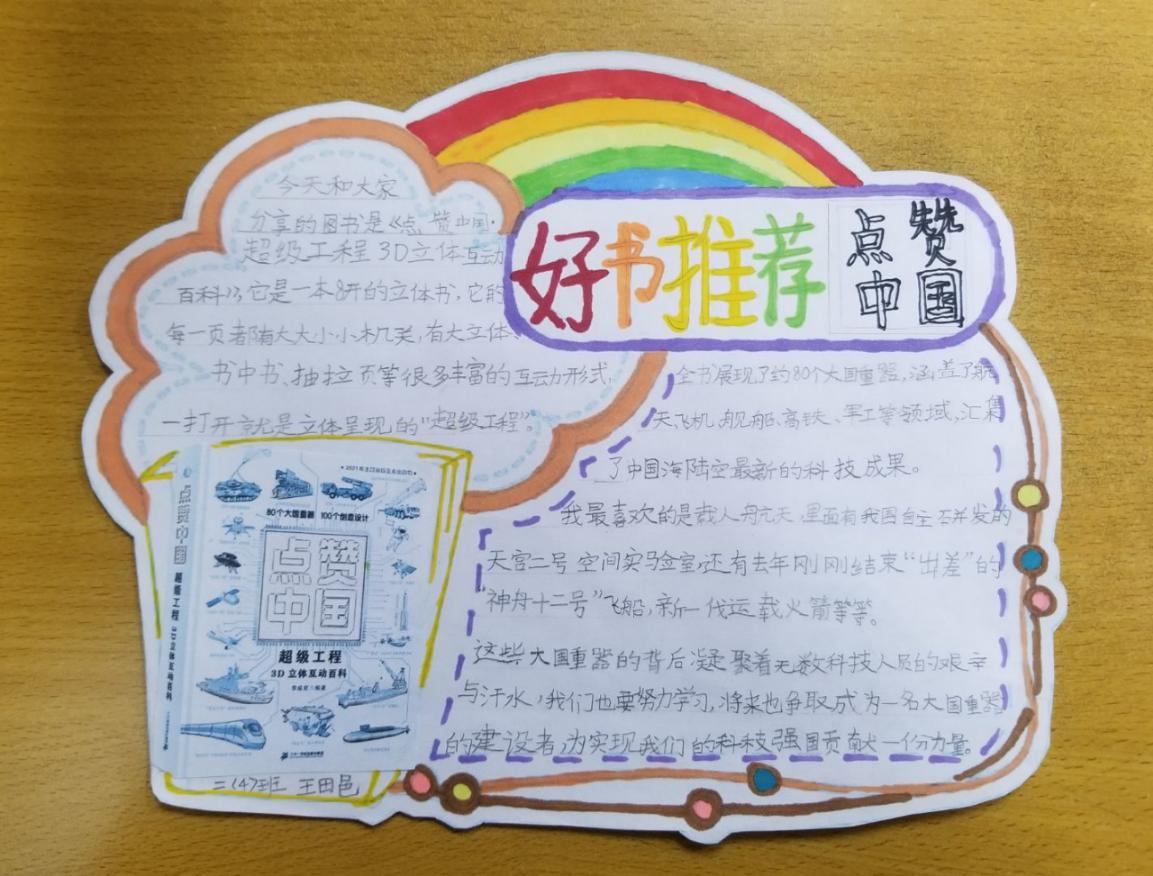 好书推荐
点赞
中国
今天和大家
分享的图书是《点赞中国·
超级工程3D立体互动
百科》,它是一本8开的立体书,它的
每一页都有大大小小机关,有大立体、
书中书、抽拉页等很多丰富的互动形式,
一打开就是立体呈现的“超级工程”。
全书展现了约80个大国重器,涵盖了航
天飞机、舰船、高铁、军工等领域,汇集
了中国海陆空最新的科技成果。
我最喜欢的是载人航天,里面有我国自主研发的
天宫二号空间实验室,还有去年刚刚结束“出差”的
“神舟十二号”飞船,新一代运载火箭等等。
这些大国重器的背后凝聚着无数科技人员的艰辛
与汗水,我们也要努力学习,将来也争取成为一名大国重器
的建设者,为实现我们的科技强国贡献一份力量。
点赞中国 超级工程 3D立体互动百科
80个大国重器 100个创意设计
点赞
中国
超级工程
3D立体互动百科
二(4)班 王田邑